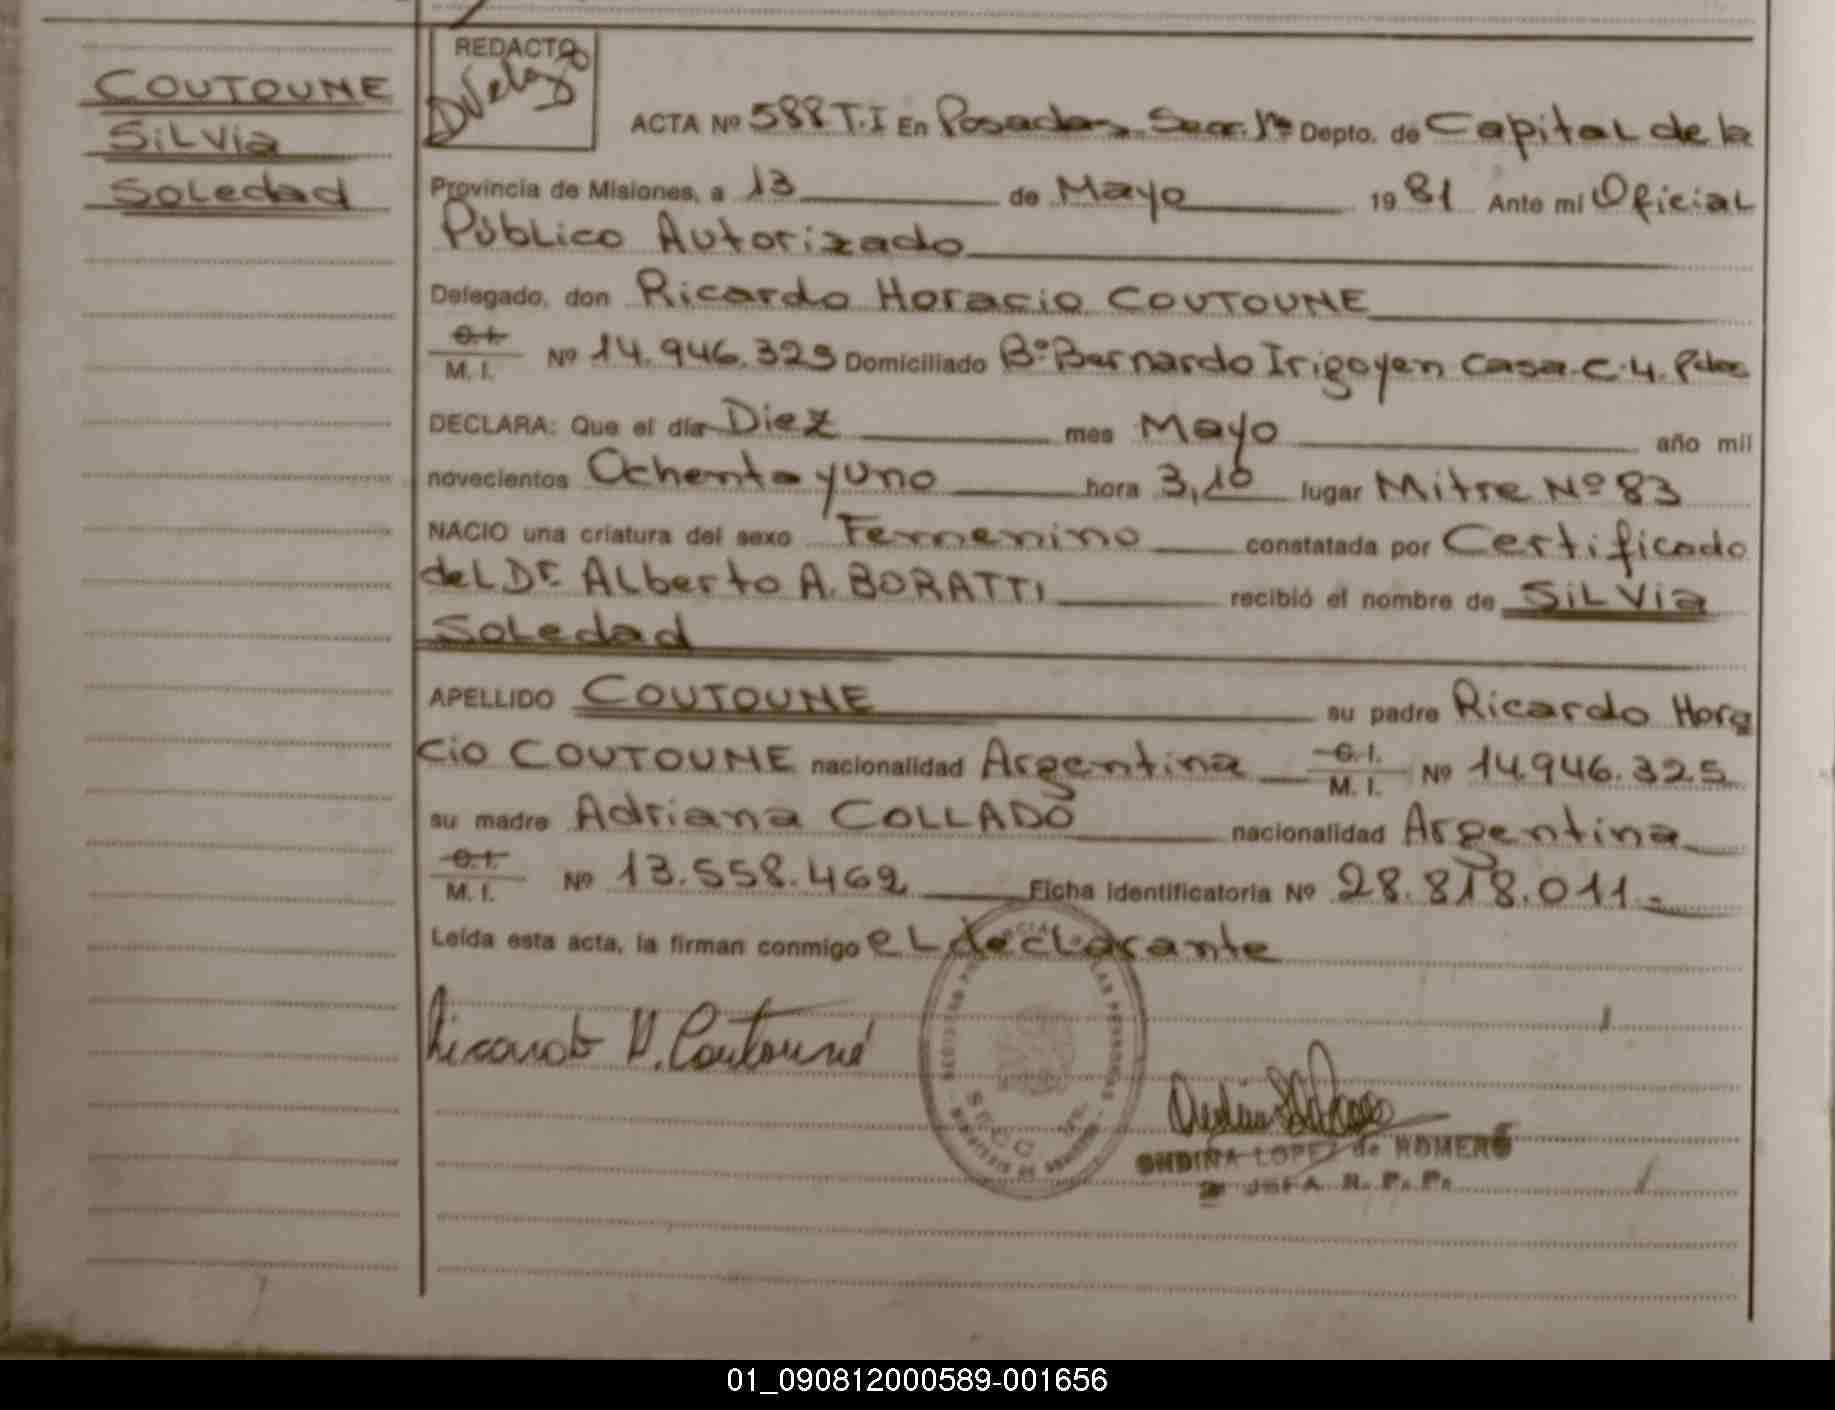 COUTOUNE
SiLVia
SoLedad
REDACTO
ACTA Nº 588 T.I En Posadas Secc. 1ª Depto. de Capital de la
Provincia de Misiones, a 13 de Mayo 19 81 Ante mi Oficial
Público Autorizado
Delegado, don Ricardo Horacio COUTOUNE
C.I.
M. I. Nº 14.946.325 Domiciliado Bº Bernardo Irigoyen Casa C.4. Pdas
DECLARA: Que el día Diez mes Mayo año mil
novecientos Ochenta y uno hora 3,10 lugar Mitre Nº 83
NACIO una criatura del sexo Femenino constatada por Certificado
del Dr. ALberto A. BORATTI recibió el nombre de SiLVia
SoLedad
APELLIDO COUTOUNE su padre Ricardo Hora
cio COUTOUNE nacionalidad Argentina C.I.
M. I. Nº 14.946.325
su madre Adriana COLLADO nacionalidad Argentina
C.I.
M. I. Nº 13.558.462 Ficha identificatoria Nº 28.818.011.-
Leída esta acta, la firman conmigo eL decLarante
Ricardo H. Coutouné
ONDINA LOPEZ de ROMERO
2ª JEFA R. P. P.
01_090812000589-001656